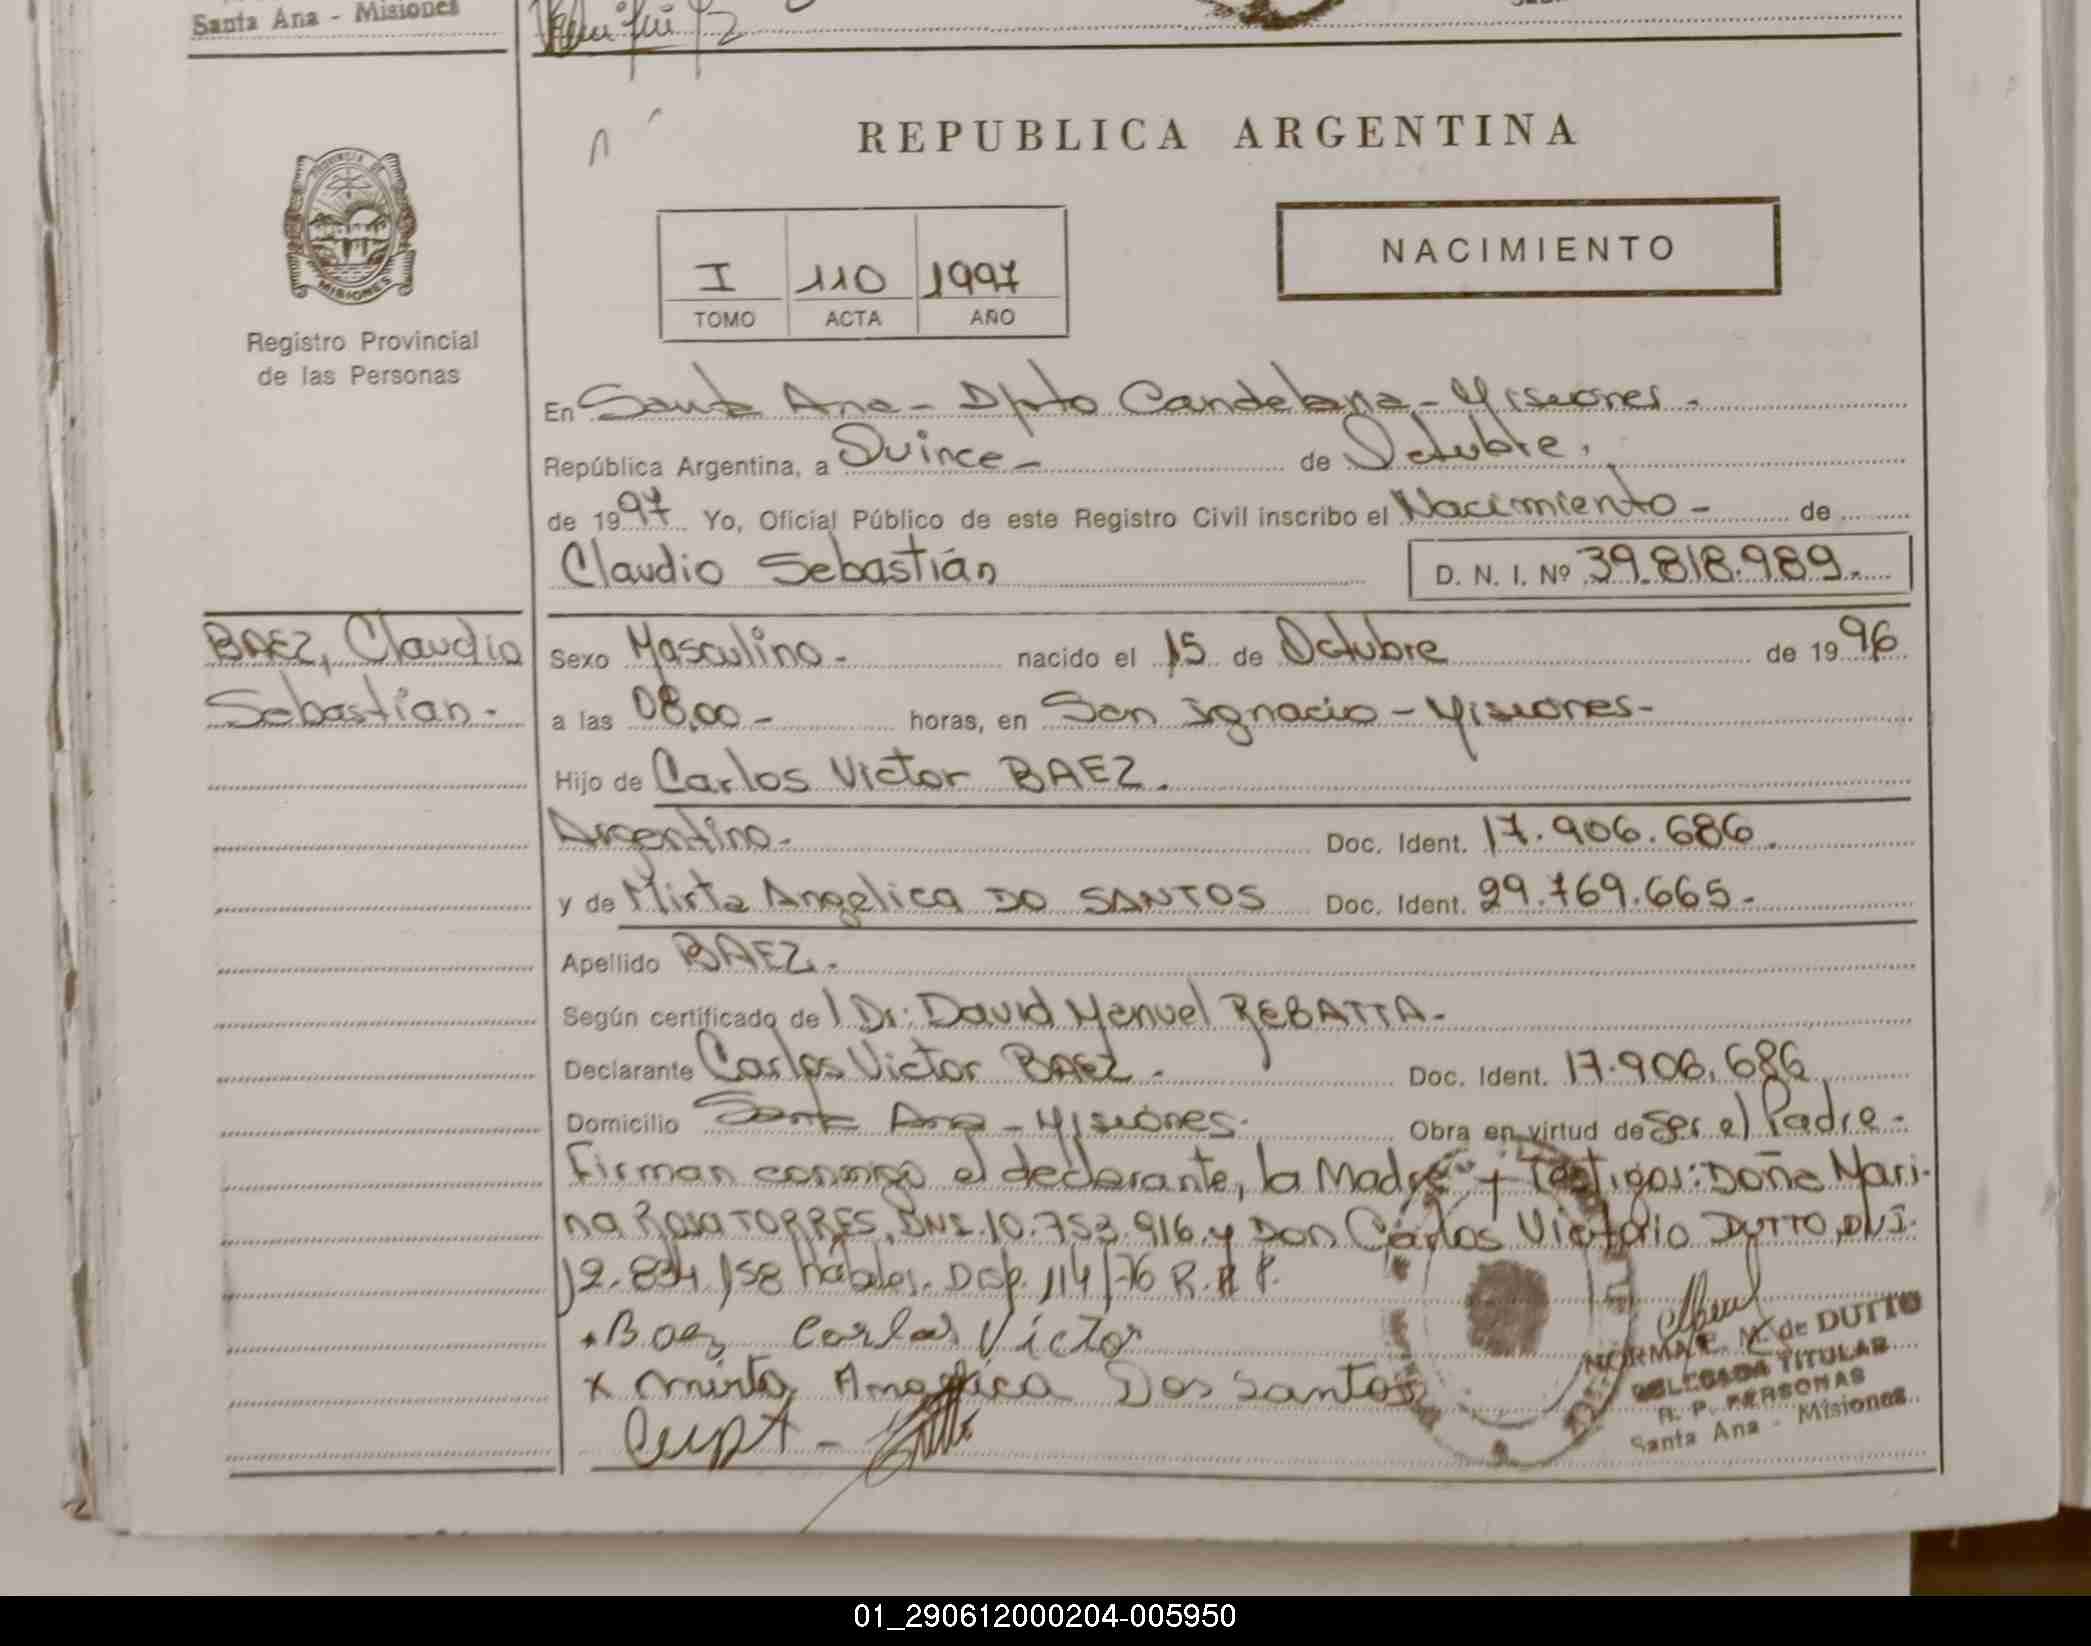 Santa Ana - Misiones
REPUBLICA ARGENTINA
PROVINCIA DE
MISIONES
Registro Provincial
de las Personas
I 110 1997
TOMO ACTA AÑO
NACIMIENTO
En Santa Ana - Dpto Candelaria - Misiones.
República Argentina, a Quince - de Octubre.
de 1997 Yo, Oficial Público de este Registro Civil inscribo el Nacimiento - de
Claudio Sebastián D. N. I. Nº 39.818.989.
BAEZ, Claudio
Sebastian.
Sexo Masculino. nacido el 15 de Octubre de 1996
a las 08,00 - horas, en San Ignacio - Misiones -
Hijo de Carlos Victor BAEZ.
Argentino. Doc. Ident. 17.906.686.
y de Mirta Angelica DO SANTOS Doc. Ident. 29.769.665.
Apellido BAEZ.
Según certificado del Dr. David Manuel REBATTA.
Declarante Carlos Victor BAEZ. Doc. Ident. 17.906.686
Domicilio Santa Ana - Misiones. Obra en virtud de Ser el Padre -
Firman conmigo el declarante, la Madre y Testigos: Doña Mari-
na Rosa TORRES, DNI. 10.753.916. y Don Carlos Victorio DUTTO, DNI.
12.834.158 hábiles. Disp. 114/76 R.P.P.
Baez Carlos Victor
x Mirta Angelica Dos Santos
NORMA E. M. de DUTTO
DELEGADA TITULAR
R. P. PERSONAS
Santa Ana - Misiones
01_290612000204-005950